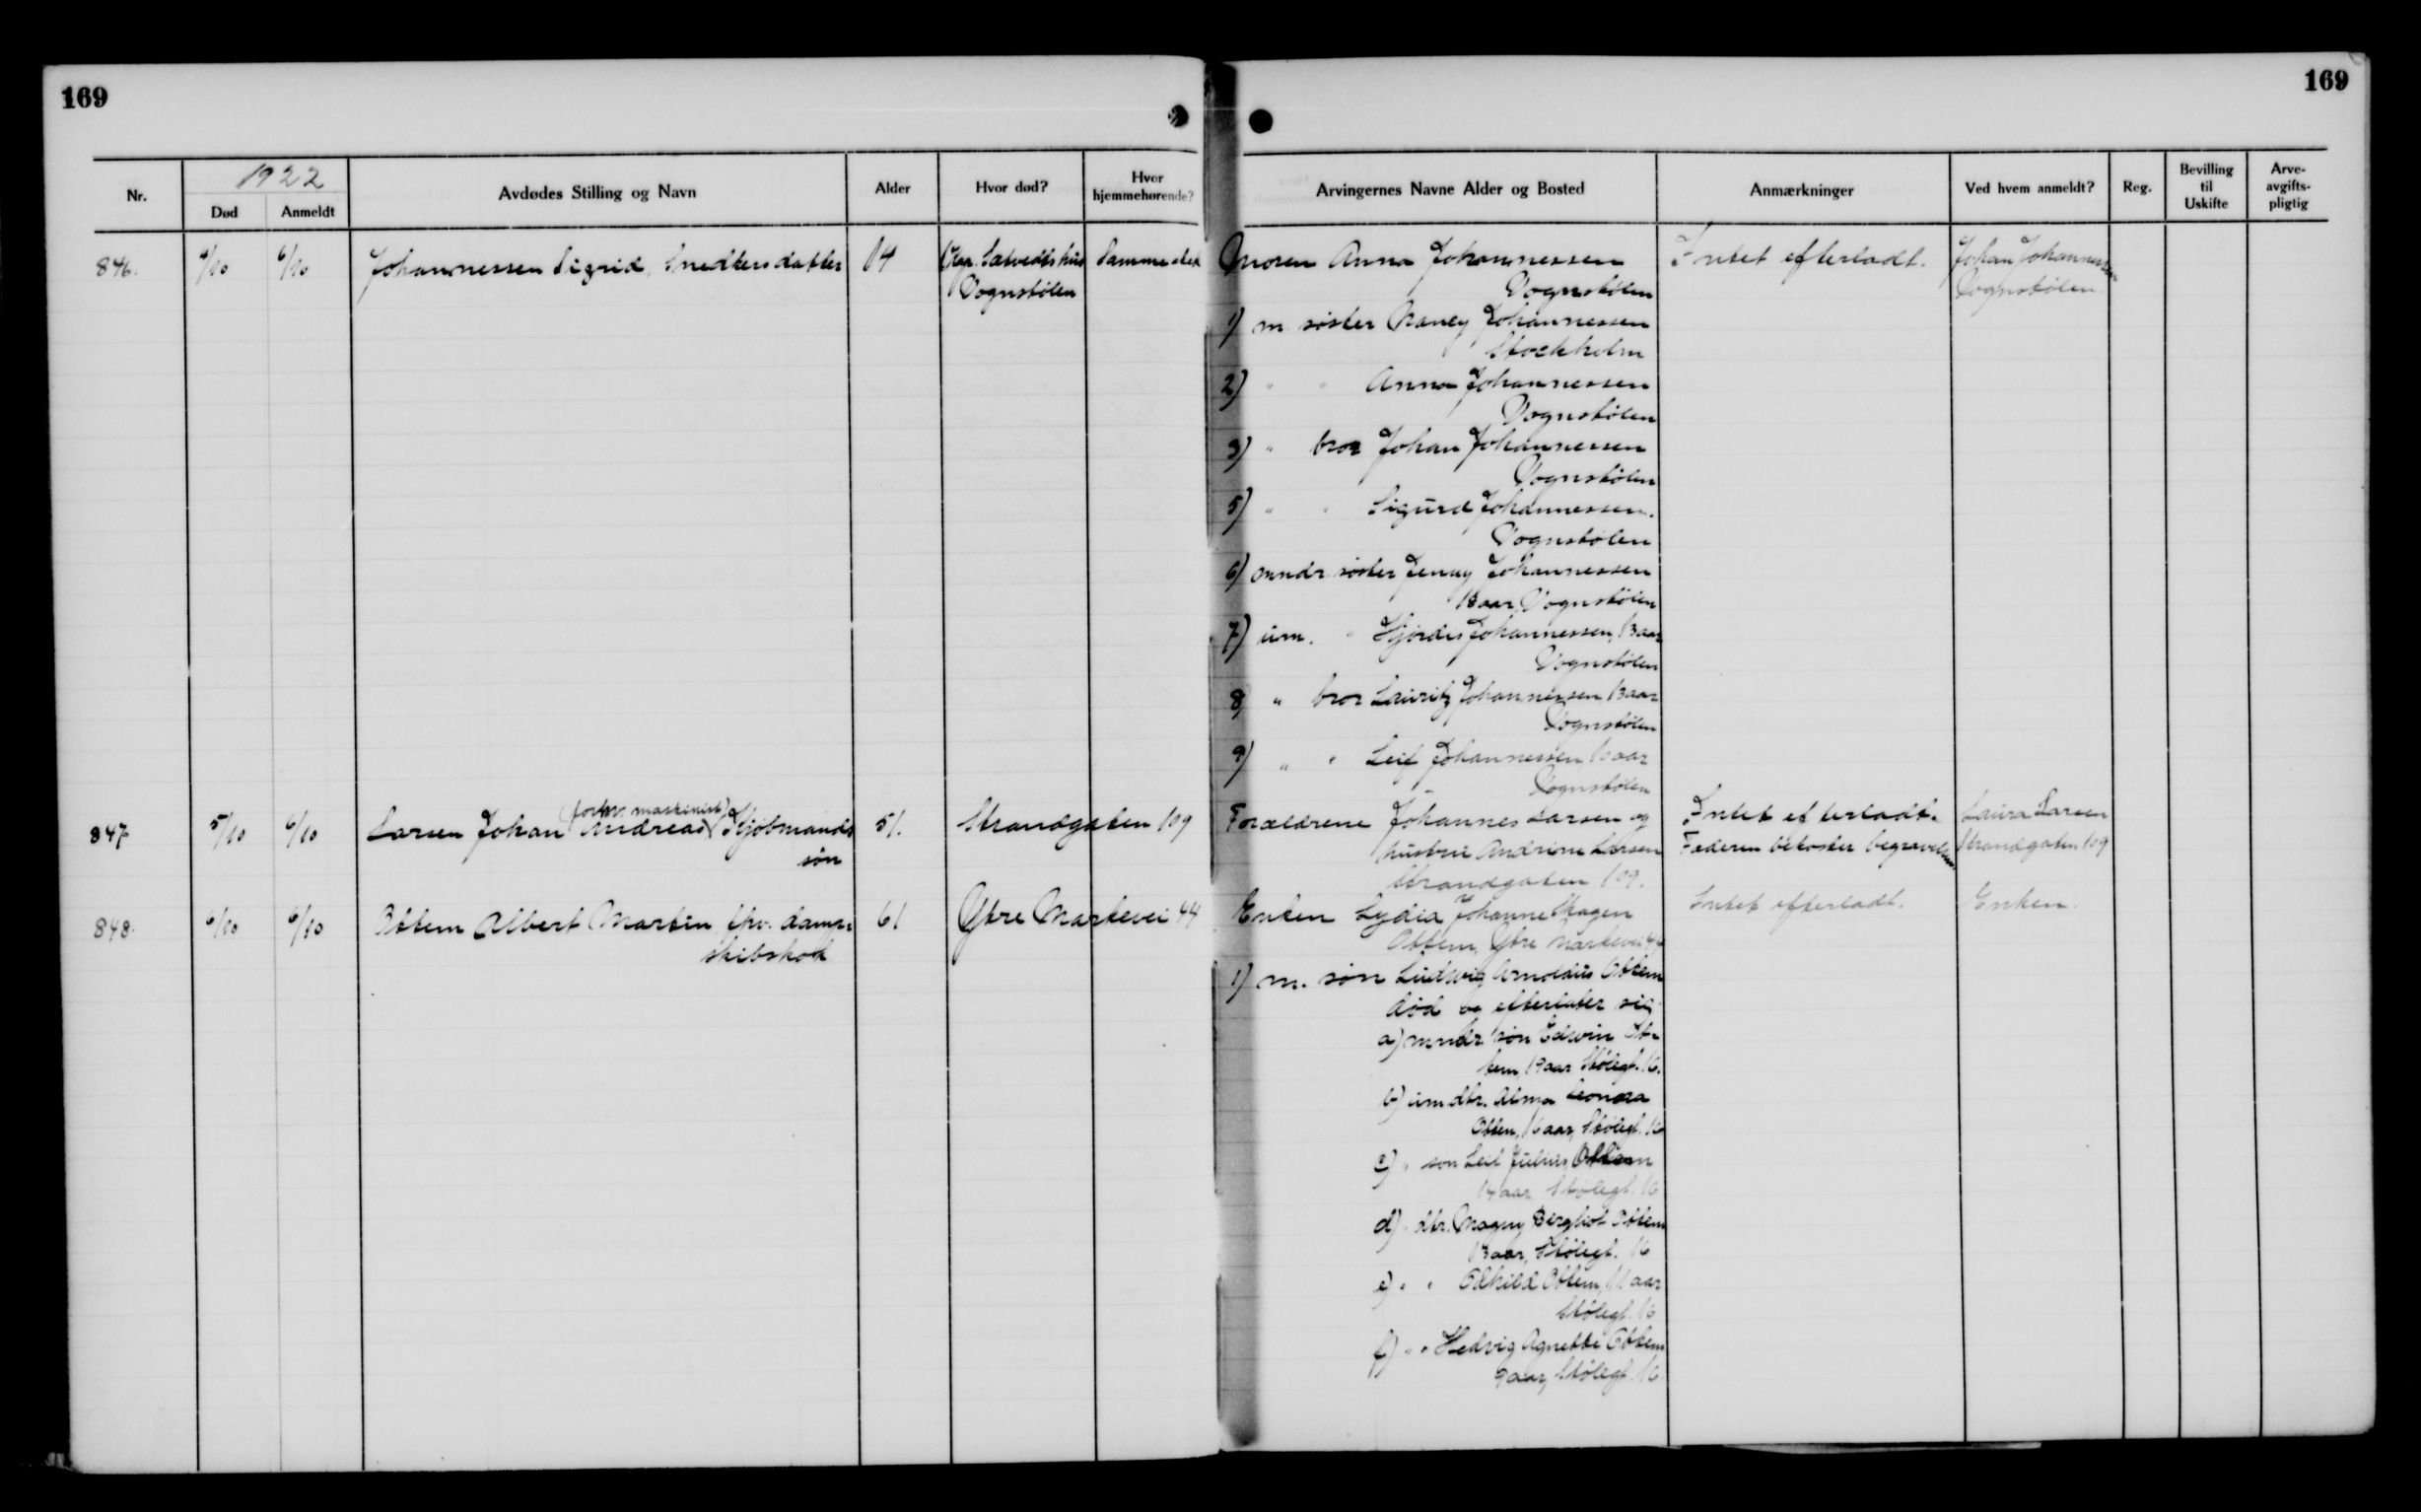 169
169
Nr.
1922
Død
Anmeldt
Avdødes Stilling og Navn
Alder
Hvor død?
Hvor hjemmehørende?
Arvingernes Navne Alder og Bosted
Anmærkninger
Ved hvem anmeldt?
Reg.
Bevilling til Uskifte
Arve-avgifts-pligtig
846. 4/10 6/10 Johannessen Sigrid, Snedkersdatter 14 Sætvedts hus Sammesteds
Vognstølen
Moren Anna Johannessen
Vognstølen
1) m. søster Nancy Johannessen
Stockholm
2) " " Anna Johannessen
Vognstølen
3) " bror Johan Johannessen
Vognstølen
5) " " Sigurd Johannessen.
Vognstølen
6) mndr søster Jenny Johannessen
18 aar, Vognstølen
7) um. " Hjørdis Johannessen, 13 aar
Vognstølen
8) " bror Lauritz Johannessen 13 aar
Vognstølen
9) " " Leif Johannessen, 10 aar
Vognstølen
Intet efterladt.
Johan Johannessen
Vognstølen
847 5/10 6/10 Larsen Johan Andreas (forhv. maskinist) Kjøbmands
søn
51.
Strandgaten 109
Forældrene Johannes Larsen og
hustru Andrine Larsen
Strandgaten 109.
Intet efterladt.
Faderen bekoster begravelsen
Laura Larsen
Strandgaten 109
848. 6/10 6/10 Ottem Albert Martin, fhv. damp-
skibskok
61
Ytre Markevei 44
Enken Lydia Johanne Skagen
Ottem, Ytre Markevei 44
Intet efterladt.
Enken.
1) m. søn Ludvig Arnoldus Ottem
død og efterlater sig
a) mndr. søn Edwin Ot-
tem, 19 aar Stølegt. 16.
b) um dtr. Alma Leonora
Ottem, 16 aar, Stølegt. 16
c) " søn Leif Julius Ottem
14 aar, Stølegt. 16
d) " dtr. Magny Bergliot Ottem
13 aar, Stølegt. 16
e) " " Ottem, 11 aar
Stølegt. 16
f) " " Hedvig Agnethe Ottem
9 aar, Stølegt. 16